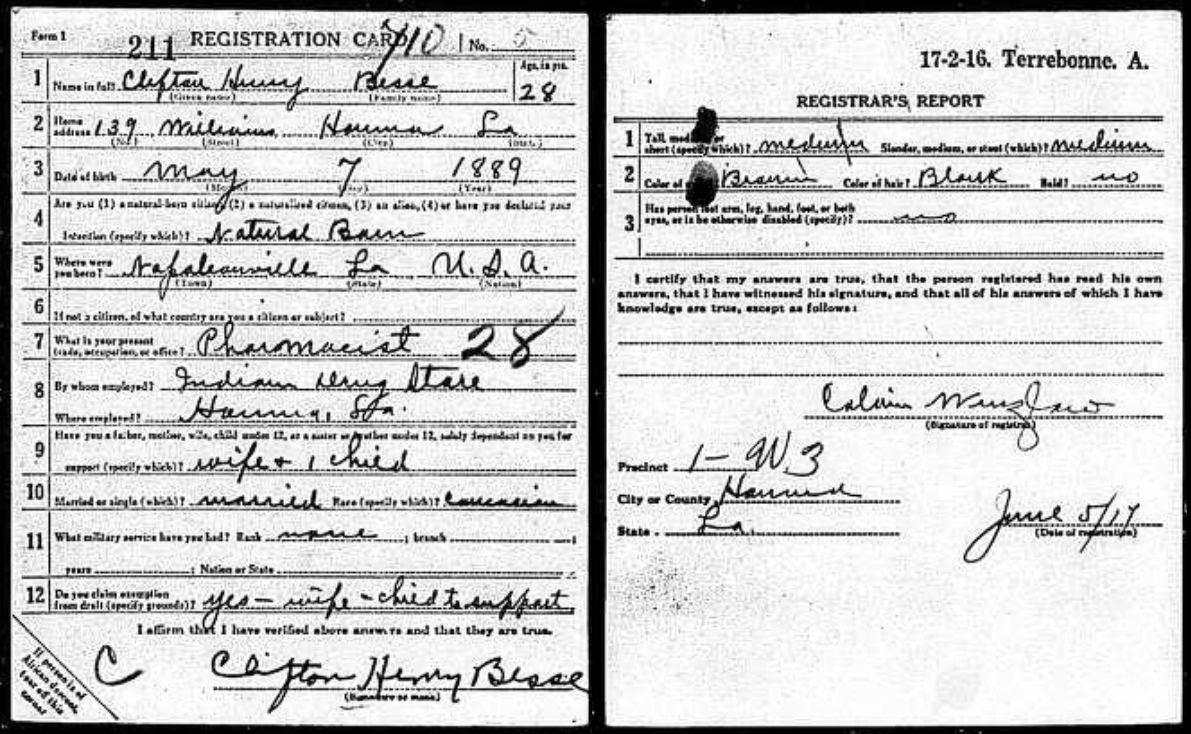 Form 1
211 REGISTRATION CARD 710 No. 5
1 Name in full? Clifton Henry Besse Age, in yrs.
(Given name) (Family name) 28
2 Home address 139 Williams Houma La
(No.) (Street) (City) (State)
3 Date of birth May 7 1889
(Month) (Day) (Year)
4 Are you (1) a natural-born citizen, (2) a naturalized citizen, (3) an alien, (4) or have you declared your
intention (specify which)? Natural Born
5 Where were you born? Napoleonville La U.S.A.
(Town) (State) (Nation)
6 If not a citizen, of what country are you a citizen or subject?
7 What is your present trade, occupation, or office? Pharmacist 28
8 By whom employed? Indian Drug Store
Where employed? Houma, La.
9 Have you a father, mother, wife, child under 12, or a sister or brother under 12, solely dependent on you for
support (specify which)? wife + 1 child
10 Married or single (which)? married Race (specify which)? Caucasian
11 What military service have you had? Rank none ; branch ;
years ; Nation or State
12 Do you claim exemption from draft (specify grounds)? yes – wife – child to support
I affirm that I have verified above answers and that they are true.
C Clifton Henry Besse
(Signature or mark)
If person is of
African descent,
tear off this
corner
17-2-16. Terrebonne. A.
REGISTRAR'S REPORT
1 Tall, medium, or short (specify which)? medium Slender, medium, or stout (which)? medium
2 Color of Brown Color of hair? Black Bald? no
3 Has person lost arm, leg, hand, foot, or both
eyes, or is he otherwise disabled (specify)? no
I certify that my answers are true, that the person registered has read his own
answers, that I have witnessed his signature, and that all of his answers of which I have
knowledge are true, except as follows:
Calvin
(Signature of registrar)
Precinct 1-W3
City or County Houma
State La. June 5/17
(Date of registration)